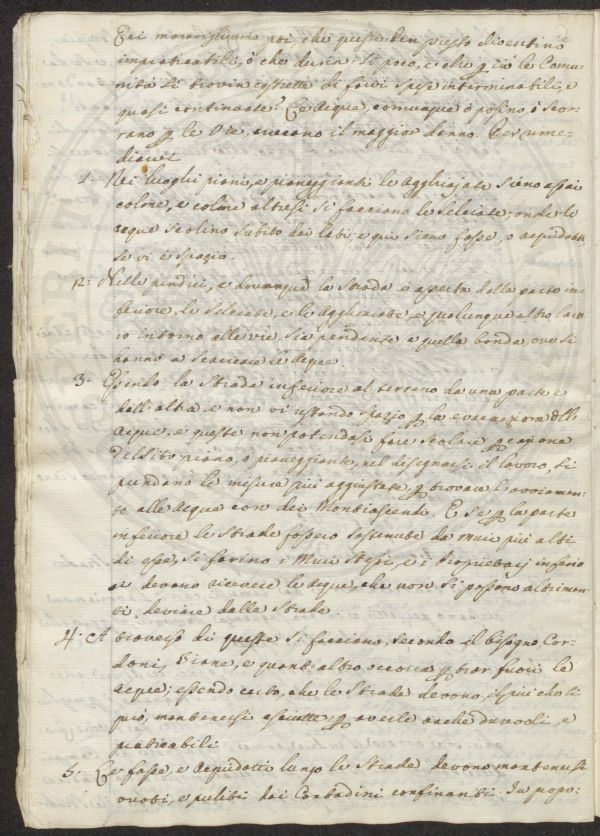 E ci maravigliamo poi che queste ben presto diventino
impraticabili, o che durin sì poco, e che p ciò le Comu-
nità si trovin costrette di farvi spese interminabili, e
quasi continuate? Le Acque, comunque o posino, o scor-
rano p le Vie, arecano il maggior danno. Per rime-
diarvi
1. Nei luoghi piani, e pianeggianti le Agghiajate sieno assai
colme, e colme altresì si facciano le Selciate; onde le
acque scolino subito dai lati; e qui sieno fosse, o acquidotti
se vi è spazio.
2. Nelle pendici, e dovunque la Strada è aperta dalla parte in-
feriore, le Selciate, e le Agghiaiate, e qualunque altro lavo-
ro intorno alle vie, sia pendente a quella banda, ove si
hanno a scaricare le Acque.
3. Essendo la Strada inferiore al terreno da una parte e
dall'altra, e non vi restando spazio p la evacuazione dell'
Acque, e queste non potendosi fare scolare p cagione
del sito piano, o pianeggiante, nel disegnarsi il lavoro, si
prendano le misure più aggiustate, p trovare l'avviamen-
to alle Acque con dei Montiascende. E se p la parte
inferiore le Strade fossero sostenute da muri più alti
di esse, si forino i Muri stessi, e i Proprietarj inferio
ri devono ricevere le Acque, che non si possono altrimen-
ti deviare dalle Strade.
4. A traverso di queste si facciano, secondo il bisogno, Cor-
doni, Piane, e quant'altro occorra p trar fuori le
Acque; essendo certo, che le Strade devono, il più che si
può, mantenersi asciutte p averle anche durevoli, e
praticabili
5. Le fosse, e Acquidotti lungo le Strade devono mantenersi
vuoti, e puliti dai Contadini confinanti. In propo-